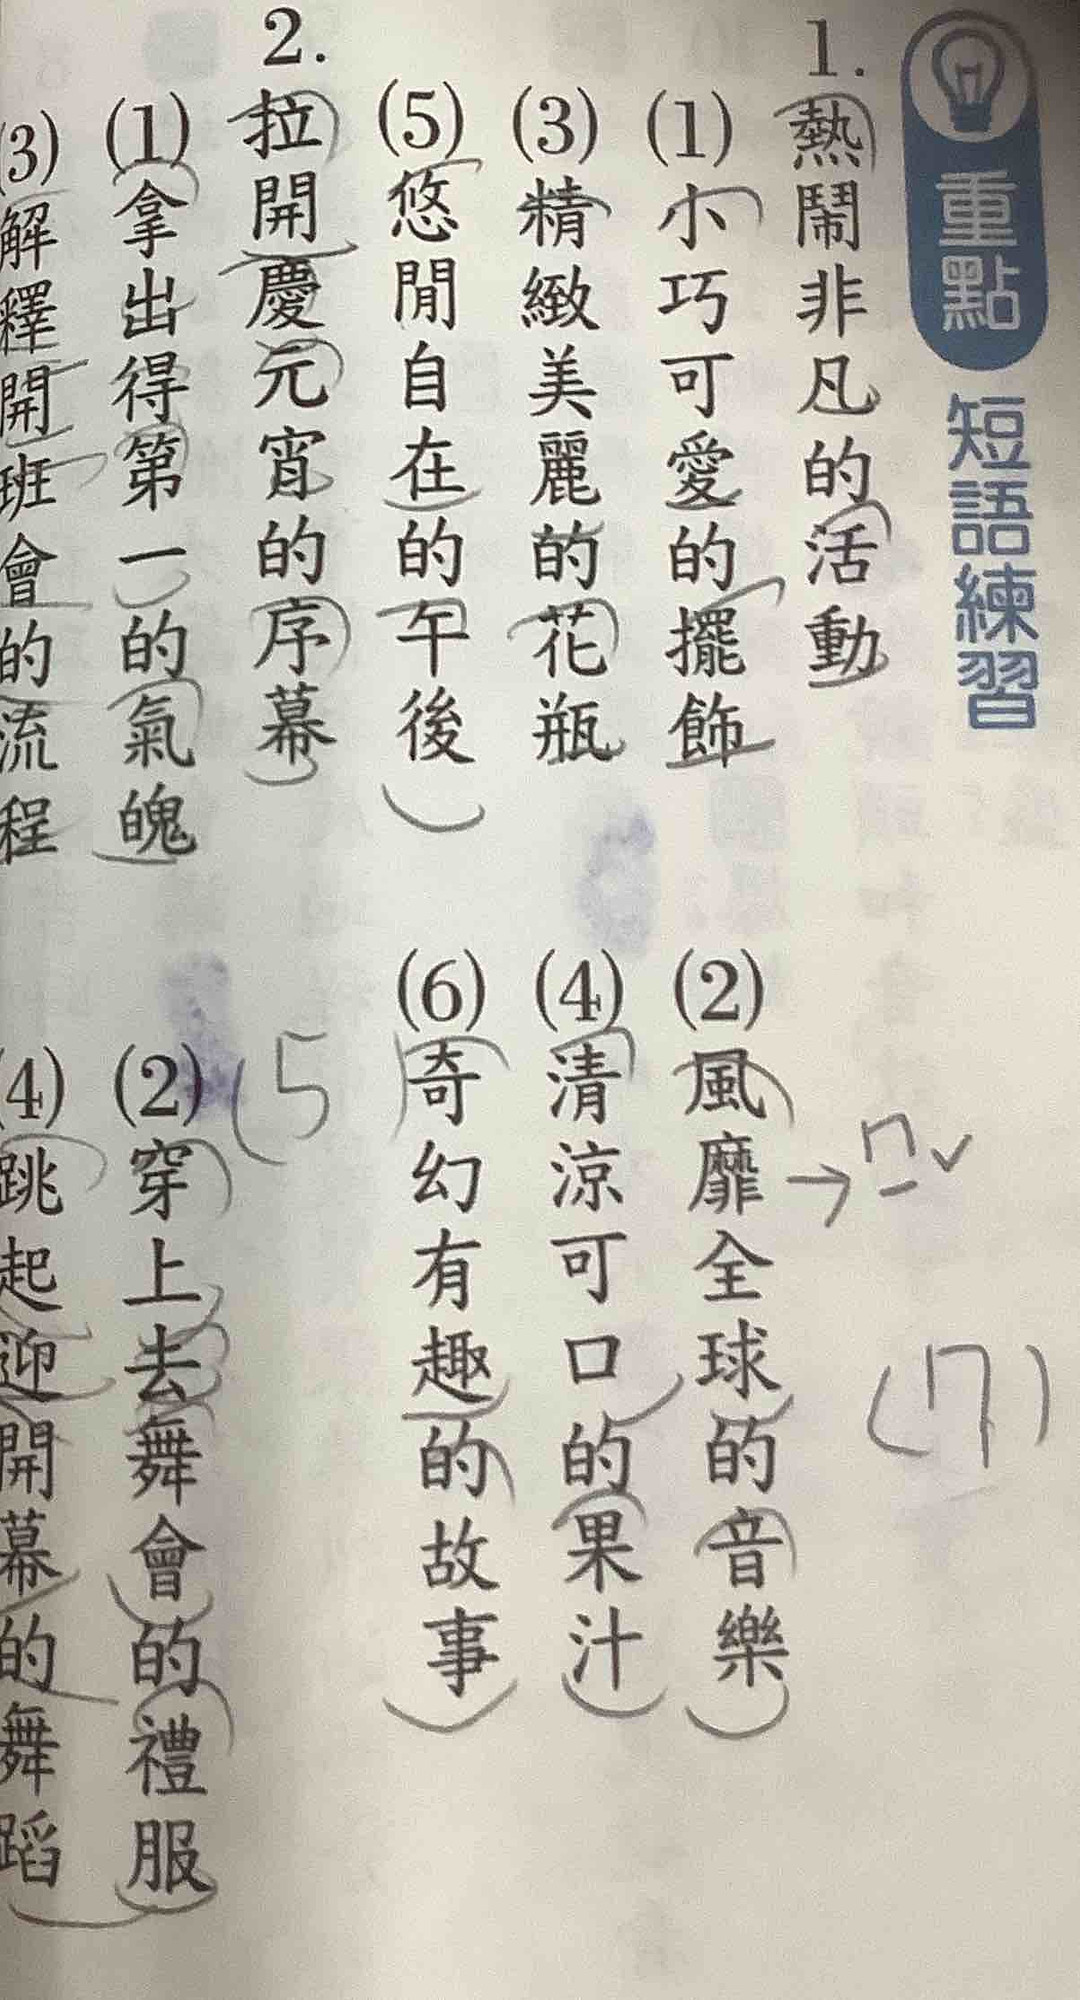 重點 短語練習
1. 熱鬧非凡的活動
(1)小巧可愛的擺飾
(2)風靡全球的音樂
→ㄇㄧˇ
(3)精緻美麗的花瓶
(4)清涼可口的果汁
(5)悠閒自在的午後
(6)奇幻有趣的故事
2. 拉開慶元宵的序幕
(1)拿出得第一的氣魄
(2)穿上去舞會的禮服
(3)解釋開班會的流程
(4)跳起迎開幕的舞蹈